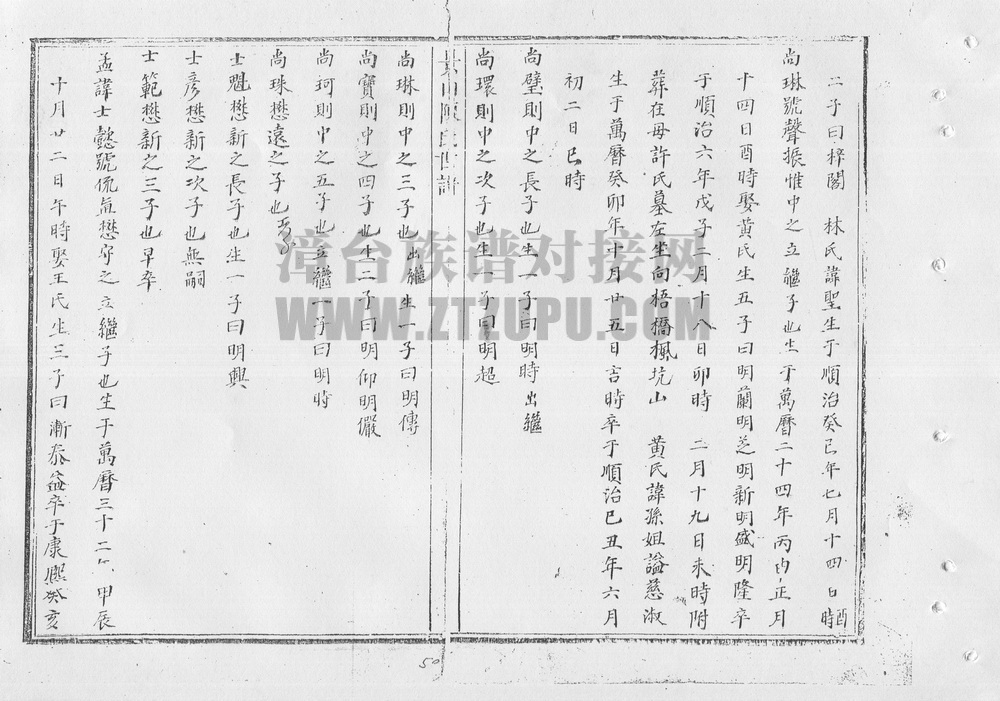 二子曰梓閣　林氏諱聖生于順治癸巳年七月十四日酉時
尚琳號聲振惟中之立繼子也生于萬曆二十四年丙申正月
十四日酉時娶黃氏生五子曰明蘭明芝明新明盛明隆卒
于順治六年戊子二月十八日卯時　二月十九日未時附
葬在母許氏墓左坐向梧橋楓坑山　黃氏諱孫姐謚慈淑
生于萬曆癸卯年十月廿五日吉時卒于順治己丑年六月
初二日巳時
尚璧則中之長子也生一子曰明時出繼
尚環則中之次子也生一子曰明超
陳氏世譜
尚琳則中之三子也出繼生一子曰明傳
尚寶則中之四子也生二子曰明仰明儼
尚珂則中之五子也立繼一子曰明時
尚珠懋遠之子也
士魁懋新之長子也生一子曰明興
士彥懋新之次子也無嗣
士範懋新之三子也早卒
孟諱士懿號侃氣懋守之立繼子也生于萬曆三十二年甲辰
十月廿二日午時娶王氏生三子曰漸泰益卒于康熙癸亥
50
漳台族谱对接网
WWW.ZTZUPU.COM